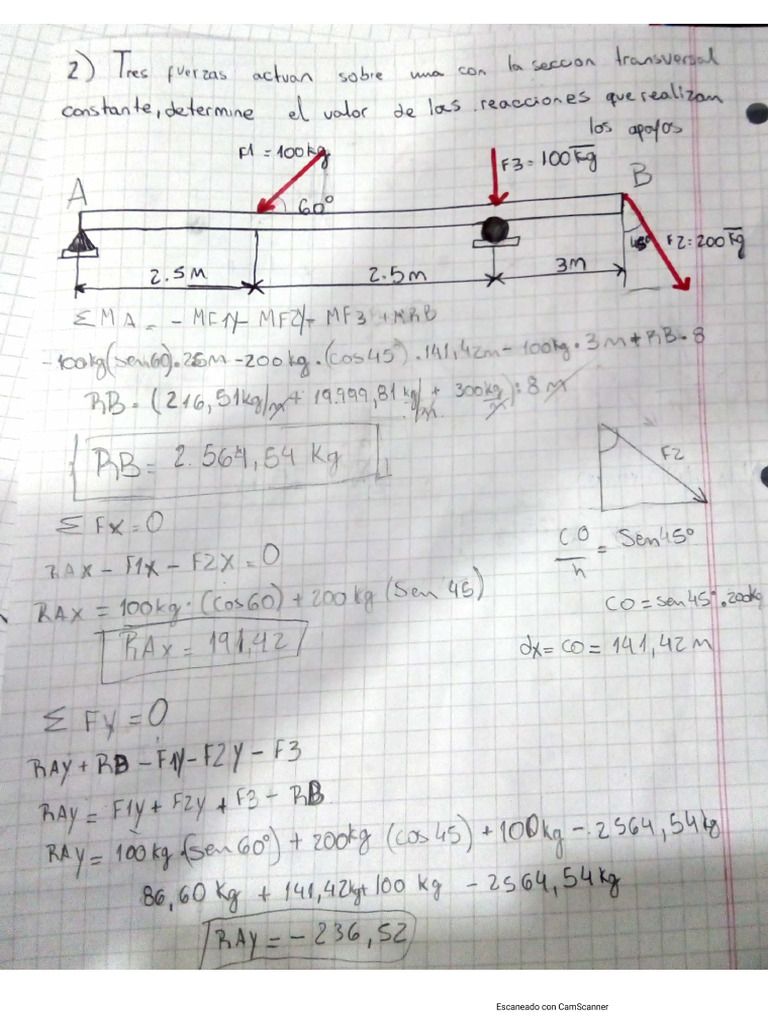 2) Tres fuerzas actuan sobre una con la seccion transversal
constante, determine el valor de las reacciones que realizan
los apoyos
F1 = 100kg
F3 = 100 Kg
A
B
60°
45°
F2 = 200 Kg
2.5M
2.5m
3m
ΣMA = - MF1 - MF2 - MF3 + MRB
-100kg(sen60).2.5M - 200kg.(cos45°).141,42m - 100kg.3M + RB.8
RB = (216,51kg/m + 19.999,81 kg/m + 300kg/m) : 8 m
RB = 2.564,54 Kg
F2
Σ Fx = 0
CO/h = Sen45°
RAX - F1X - F2X = 0
RAX = 100kg.(cos60) + 200kg (Sen 45)
CO = sen45°.200kg
RAX = 191,42
dx = CO = 141,42M
Σ Fy = 0
RAY + RB - F1Y - F2Y - F3
RAY = F1Y + F2Y + F3 - RB
RAY = 100kg (sen60°) + 200kg (cos45) + 100kg - 2564,54kg
86,60 Kg + 141,42kg + 100 kg - 2564,54kg
RAY = - 236,52
Escaneado con CamScanner